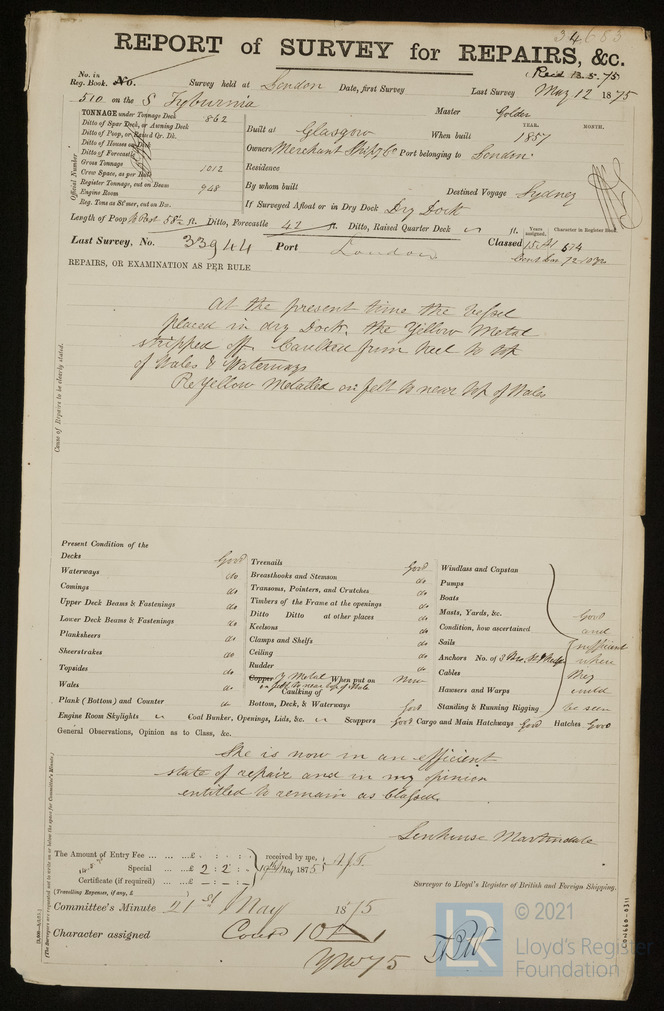 34683
REPORT of SURVEY for REPAIRS, &c.
Recd 13.5.75
No. in Reg. Book. No. Survey held at London Date, first Survey Last Survey May 12 1875
510 on the S Tyburnia Master Golder
TONNAGE under Tonnage Deck 862
Ditto of Spar Deck, or Awning Deck
Ditto of Poop, or Raised Qr. Dk.
Ditto of Houses on Deck
Ditto of Forecastle
Gross Tonnage 1012
Crew Space, as per Rule
Register Tonnage, cut on Beam 948
Engine Room
Reg. Tons as St'mer, cut on Bm.
Official Number
YEAR. MONTH.
Built at Glasgow When built 1857
Owners Merchant Shipg Co Port belonging to London
Residence
By whom built Destined Voyage Sydney
If Surveyed Afloat or in Dry Dock Dry Dock
Length of Poop 58½ ft. Ditto, Forecastle 42 ft. Ditto, Raised Quarter Deck ft.
Years assigned. Character in Register Book.
Last Survey, No. 33944 Port London Classed 15 A1 5,74
REPAIRS, OR EXAMINATION AS PER RULE
Cause of Repairs to be clearly stated.
At the present time the Vessel
placed in dry Dock, the Yellow Metal
stripped off Caulked from keel to top
of Wales & Waterways
Re Yellow Metalled on felt to near top of Wales
Present Condition of the
Decks Good
Waterways do
Comings do
Upper Deck Beams & Fastenings do
Lower Deck Beams & Fastenings do
Planksheers do
Sheerstrakes do
Topsides do
Wales do
Plank (Bottom) and Counter do
Treenails Good
Breasthooks and Stemson do
Transoms, Pointers, and Crutches do
Timbers of the Frame at the openings do
Ditto Ditto at other places do
Keelsons do
Clamps and Shelfs do
Ceiling do
Rudder do
Copper Y Metal When put on Now
on felt to near top of Wale
Caulking of
Bottom, Deck, & Waterways Good
Windlass and Capstan
Pumps
Boats
Masts, Yards, &c.
Condition, how ascertained
Sails
Anchors No. of
Cables
Hawsers and Warps
Standing & Running Rigging
Good
and
sufficient
where
they
could
be seen
Engine Room Skylights Coal Bunker, Openings, Lids, &c. Scuppers Good Cargo and Main Hatchways Good Hatches Good
General Observations, Opinion as to Class, &c.
She is now in an efficient
state of repair and in my opinion
entitled to remain as Classed.
Lenhouse Martindale
Surveyor to Lloyd's Register of British and Foreign Shipping.
The Amount of Entry Fee ... ... £ : :
Special ... ... £ 2 : 2 :
Certificate (if required) ... £ : :
(Travelling Expenses, if any, £ )
received by me,
May 1875
Committee's Minute 21st May 1875
Character assigned
YM 75
(The Surveyors are requested not to write on or below the space for Committee's Minute.)
CON660-0311
© 2021
LR
Lloyd's Register
Foundation